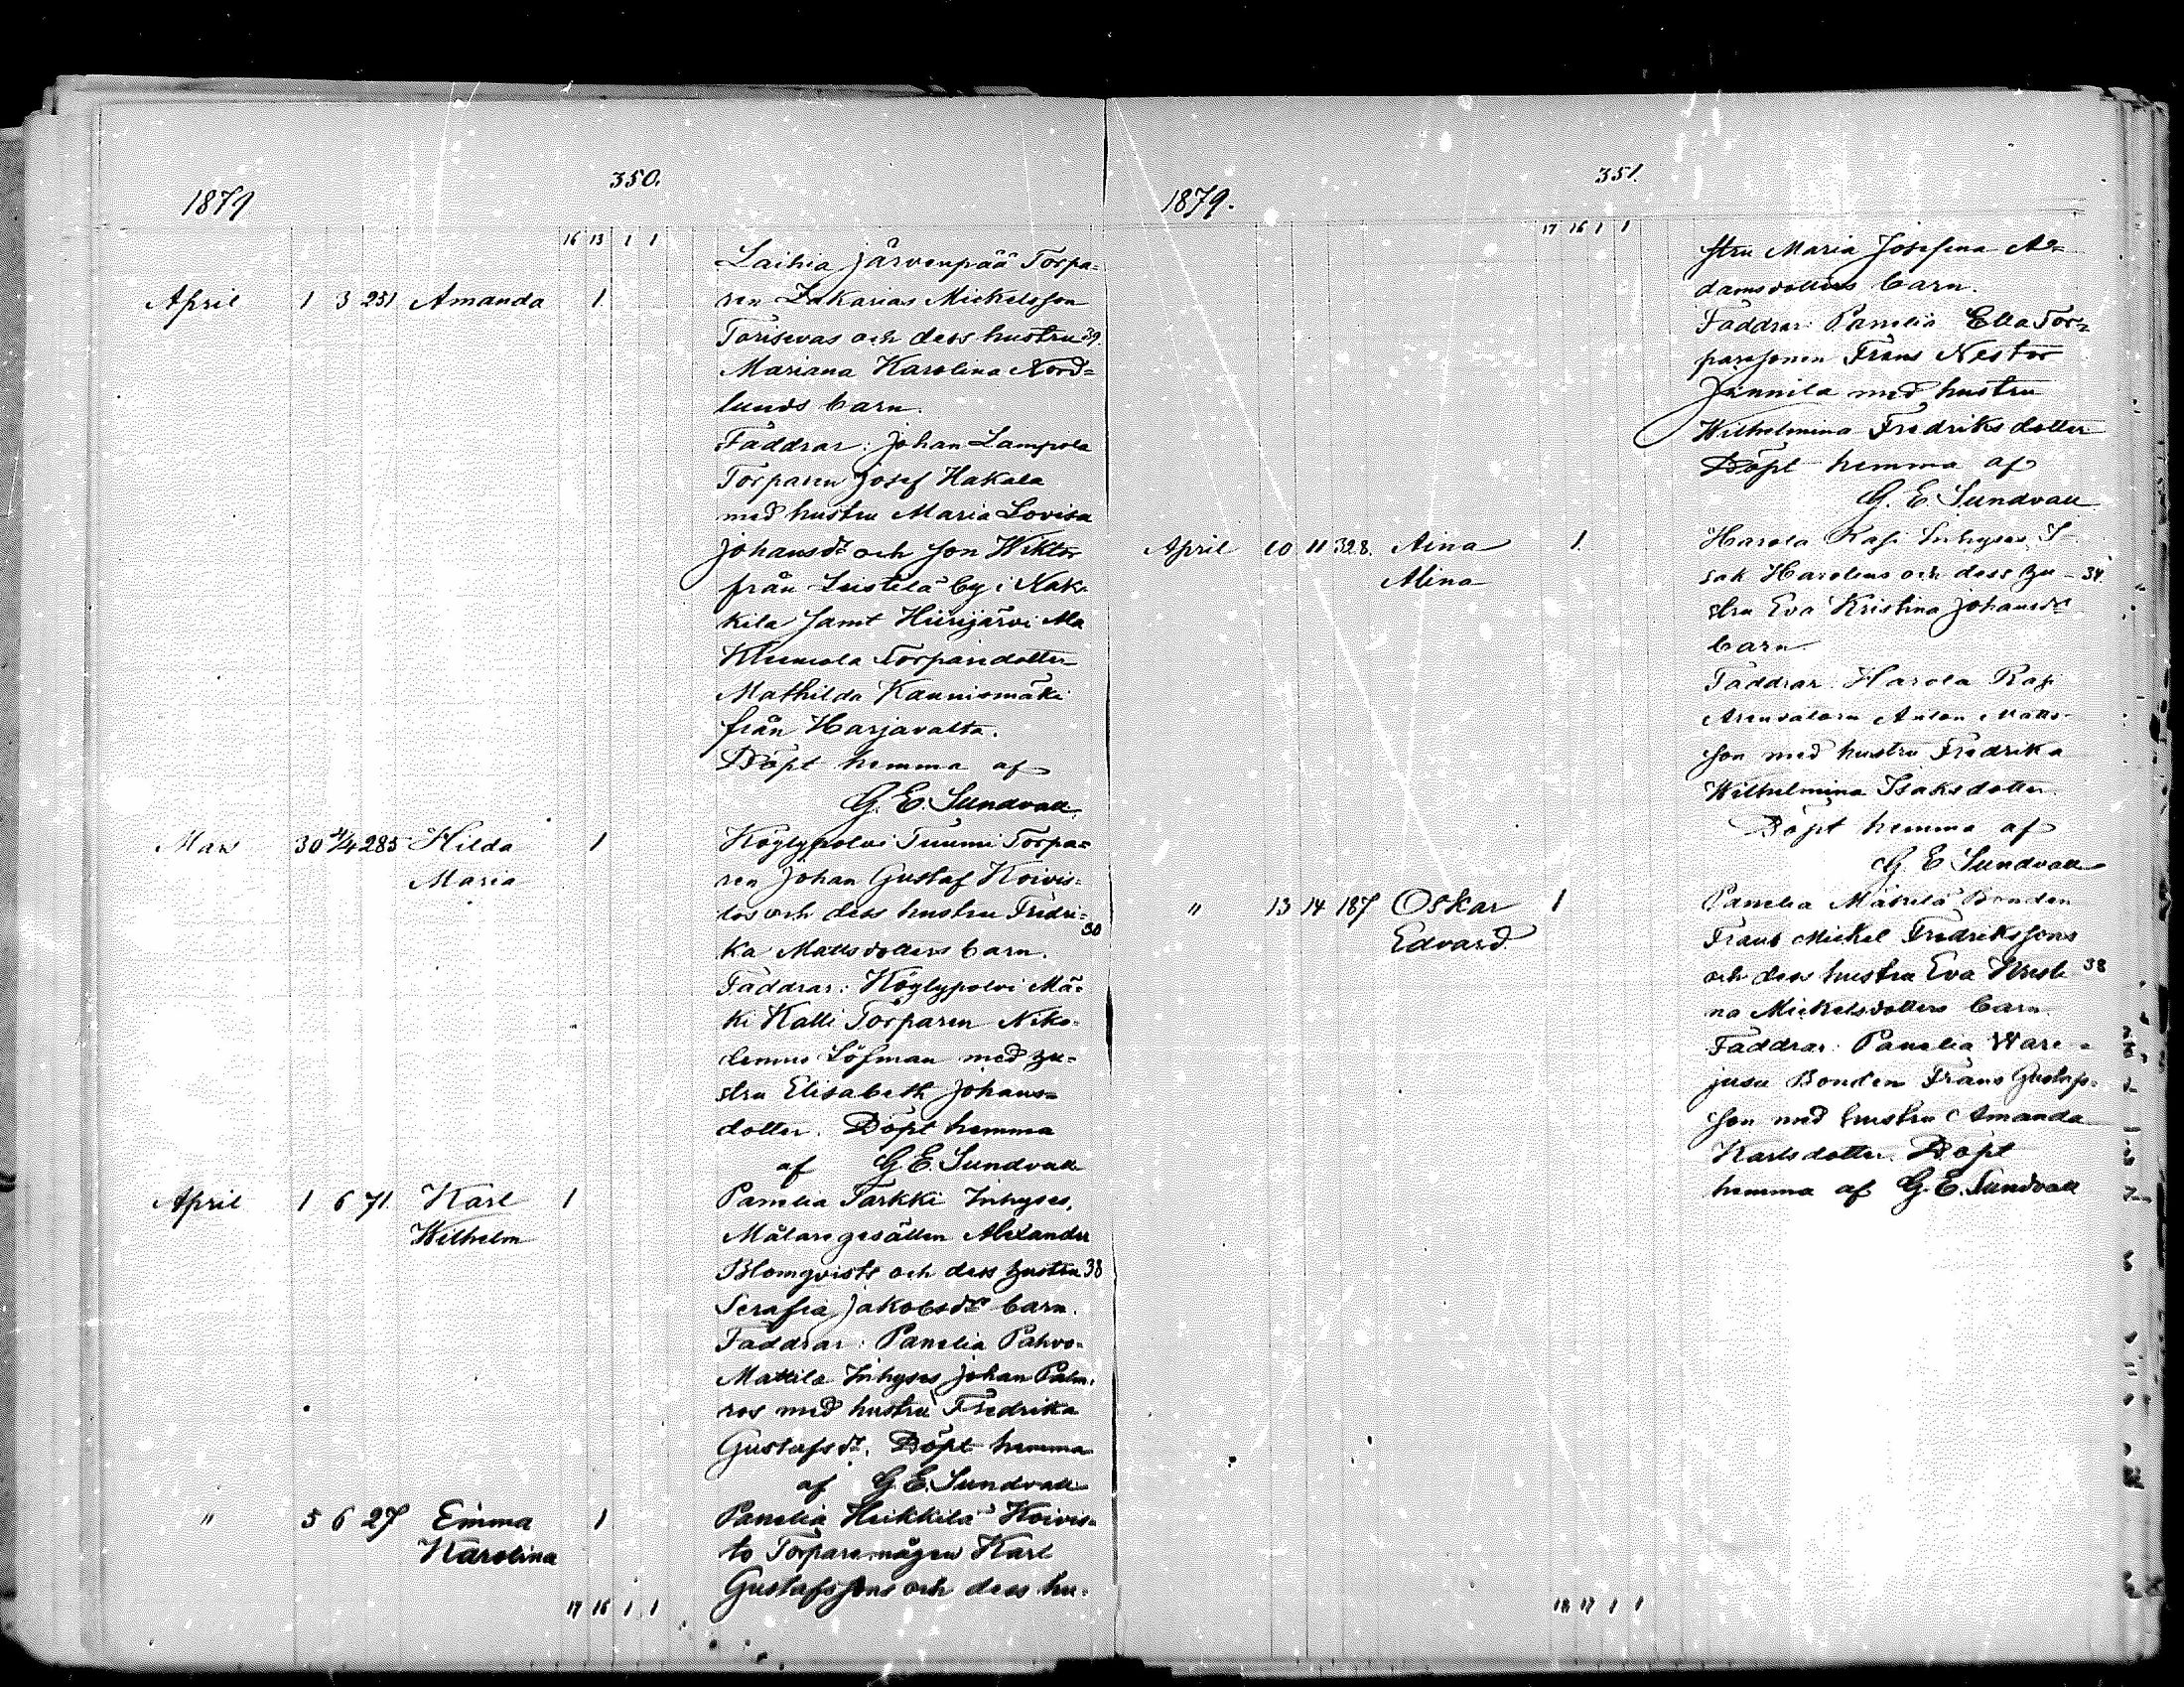 350.
1879
16 13 1 1
Laihia Järvenpää Torpa=
April 1 3 231 Amanda 1 ren Zakarias Mickelsson
Torisevas och dess hustru 39.
Mariana Karolina Nord=
lunds barn.
Faddrar: Johan Lampola
Torparen Josef Hakala
med hustru Maria Lovisa
Johansdr och son Wiktor
från Leistelä by i Nak-
kila samt Hiirijärvi Ala
Torparedotter
Mathilda Kaunismäki
från Harjavalta.
Döpt hemma af
G. E. Sundvall.
Mars 30 4/4 285 Hilda 1 Köylypolvi Tuumi Torpa=
Maria ren Johan Gustaf Koivis-
tos och dess hustru Fredri=
30
ka Mattsdotters barn.
Faddrar: Köylypolvi Mä=
ki Kalli Torparen Niko-
demus Löfman med hu=
stru Elisabeth Johans=
dotter. Döpt hemma
af G E. Sundvall
April 1 6 71. Karl 1 Panelia Tarkki Inhyses,
Wilhelm Målaregesällen Alexander
Blomqvists och dess hustru 38
Serafia Jakobsdrs barn.
Faddrar: Panelia Pahvo-
Mattila Inhyses Johan Palm-
ros med hustru Fredrika
Gustafsdr. Döpt hemma
af G. E. Sundvall
" 5 6 27 Emma 1 Panelia Heikkilä Koivis-
Karolina to Torparemågen Karl
Gustafssons och dess hu-
17 16 1 1
351.
1879.
17 16 1 1
stru Maria Josefina A=
damsdotters barn.
Faddrar: Panelia Ella Tor=
paresonen Frans Nestor
Jinnila med hustru
Wilhelmina Fredriksdotter
Döpt hemma af
G. E. Sundvall
April 10 11 328. Aina 1. Harola Kasi Inhyses I-
Alina sak Harolens och dess hu- 34.
stru Eva Kristina Johansdr
barn
Faddrar: Harola
Arendatorn Anton Matts-
son med hustru Fredrika
Wilhelmina Isaksdotter.
Döpt hemma af
G. E. Sundvall
" 13 14 187 Oskar 1 Panelia Mäkelä Bonden
Edvard Frans Mickel Fredrikssons
och dess hustru Eva Kristi 38
na Mickelsdotters barn.
Faddrar: Panelia Ware-
jusu Bonden Frans Gustafs-
son med hustru Amanda
Karlsdotter. Döpt
hemma af G. E. Sundvall
18 17 1 1